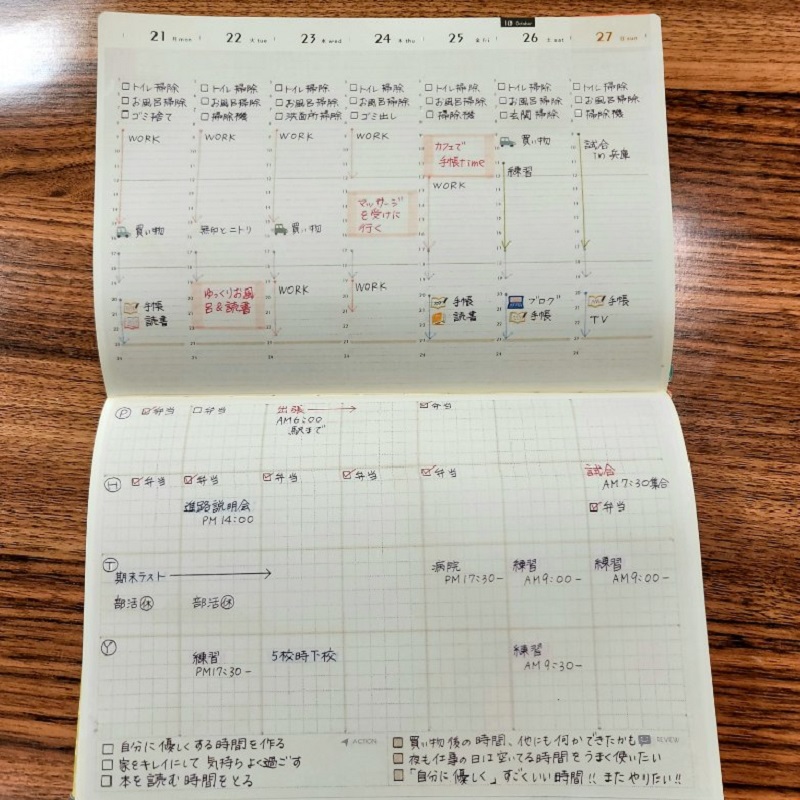 10 October
21 月 mon 22 火 tue 23 水 wed 24 木 thu 25 金 fri 26 土 sat 27 日 sun
□トイレ掃除 □トイレ掃除 □トイレ掃除 □トイレ掃除 □トイレ掃除 □トイレ掃除 □トイレ掃除
□お風呂掃除 □お風呂掃除 □お風呂掃除 □お風呂掃除 □お風呂掃除 □お風呂掃除 □お風呂掃除
□ゴミ捨て □掃除機 □洗面所掃除 □ゴミ出し □掃除機 □玄関掃除 □掃除機
WORK WORK WORK WORK カフェで 買い物 試合
手帳time 練習 in 兵庫
WORK
マッサージ
を受けに
行く
買い物 無印とニトリ 買い物
ゆっくりお風 WORK WORK
呂&読書
手帳 手帳 ブログ 手帳
読書 読書 手帳 TV
P ☑弁当 □弁当 出張 ☑弁当
AM6:00
駅まで
H ☑弁当 ☑弁当 ☑弁当 ☑弁当 ☑弁当 試合
AM7:30集合
進路説明会 ☑弁当
PM14:00
T
期末テスト 病院 練習 練習
PM17:30- AM9:00- AM9:00-
部活休 部活休
Y
練習 5校時下校 練習
PM17:30- AM9:30-
ACTION
□自分に優しくする時間を作る
□家をキレイにして気持ちよく過ごす
□本を読む時間をとる
REVIEW
□買い物後の時間、他にも何かできたかも
□夜も仕事の日は空いてる時間をうまく使いたい
□「自分に優しく」すごくいい時間!!またやりたい!!